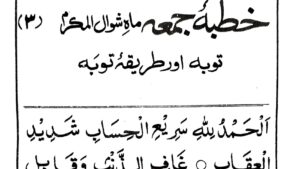 خطبۂ جمعہ ماہِ شوال المکرم (۳)
توبہ اور طریقۂ توبہ
اَلْحَمْدُ لِلّٰهِ سَرِيْعِ الْحِسَابِ شَدِيْدِ
الْعِقَابِ ○ غَافِرِ الذَّنْبِ وَقَابِلِ